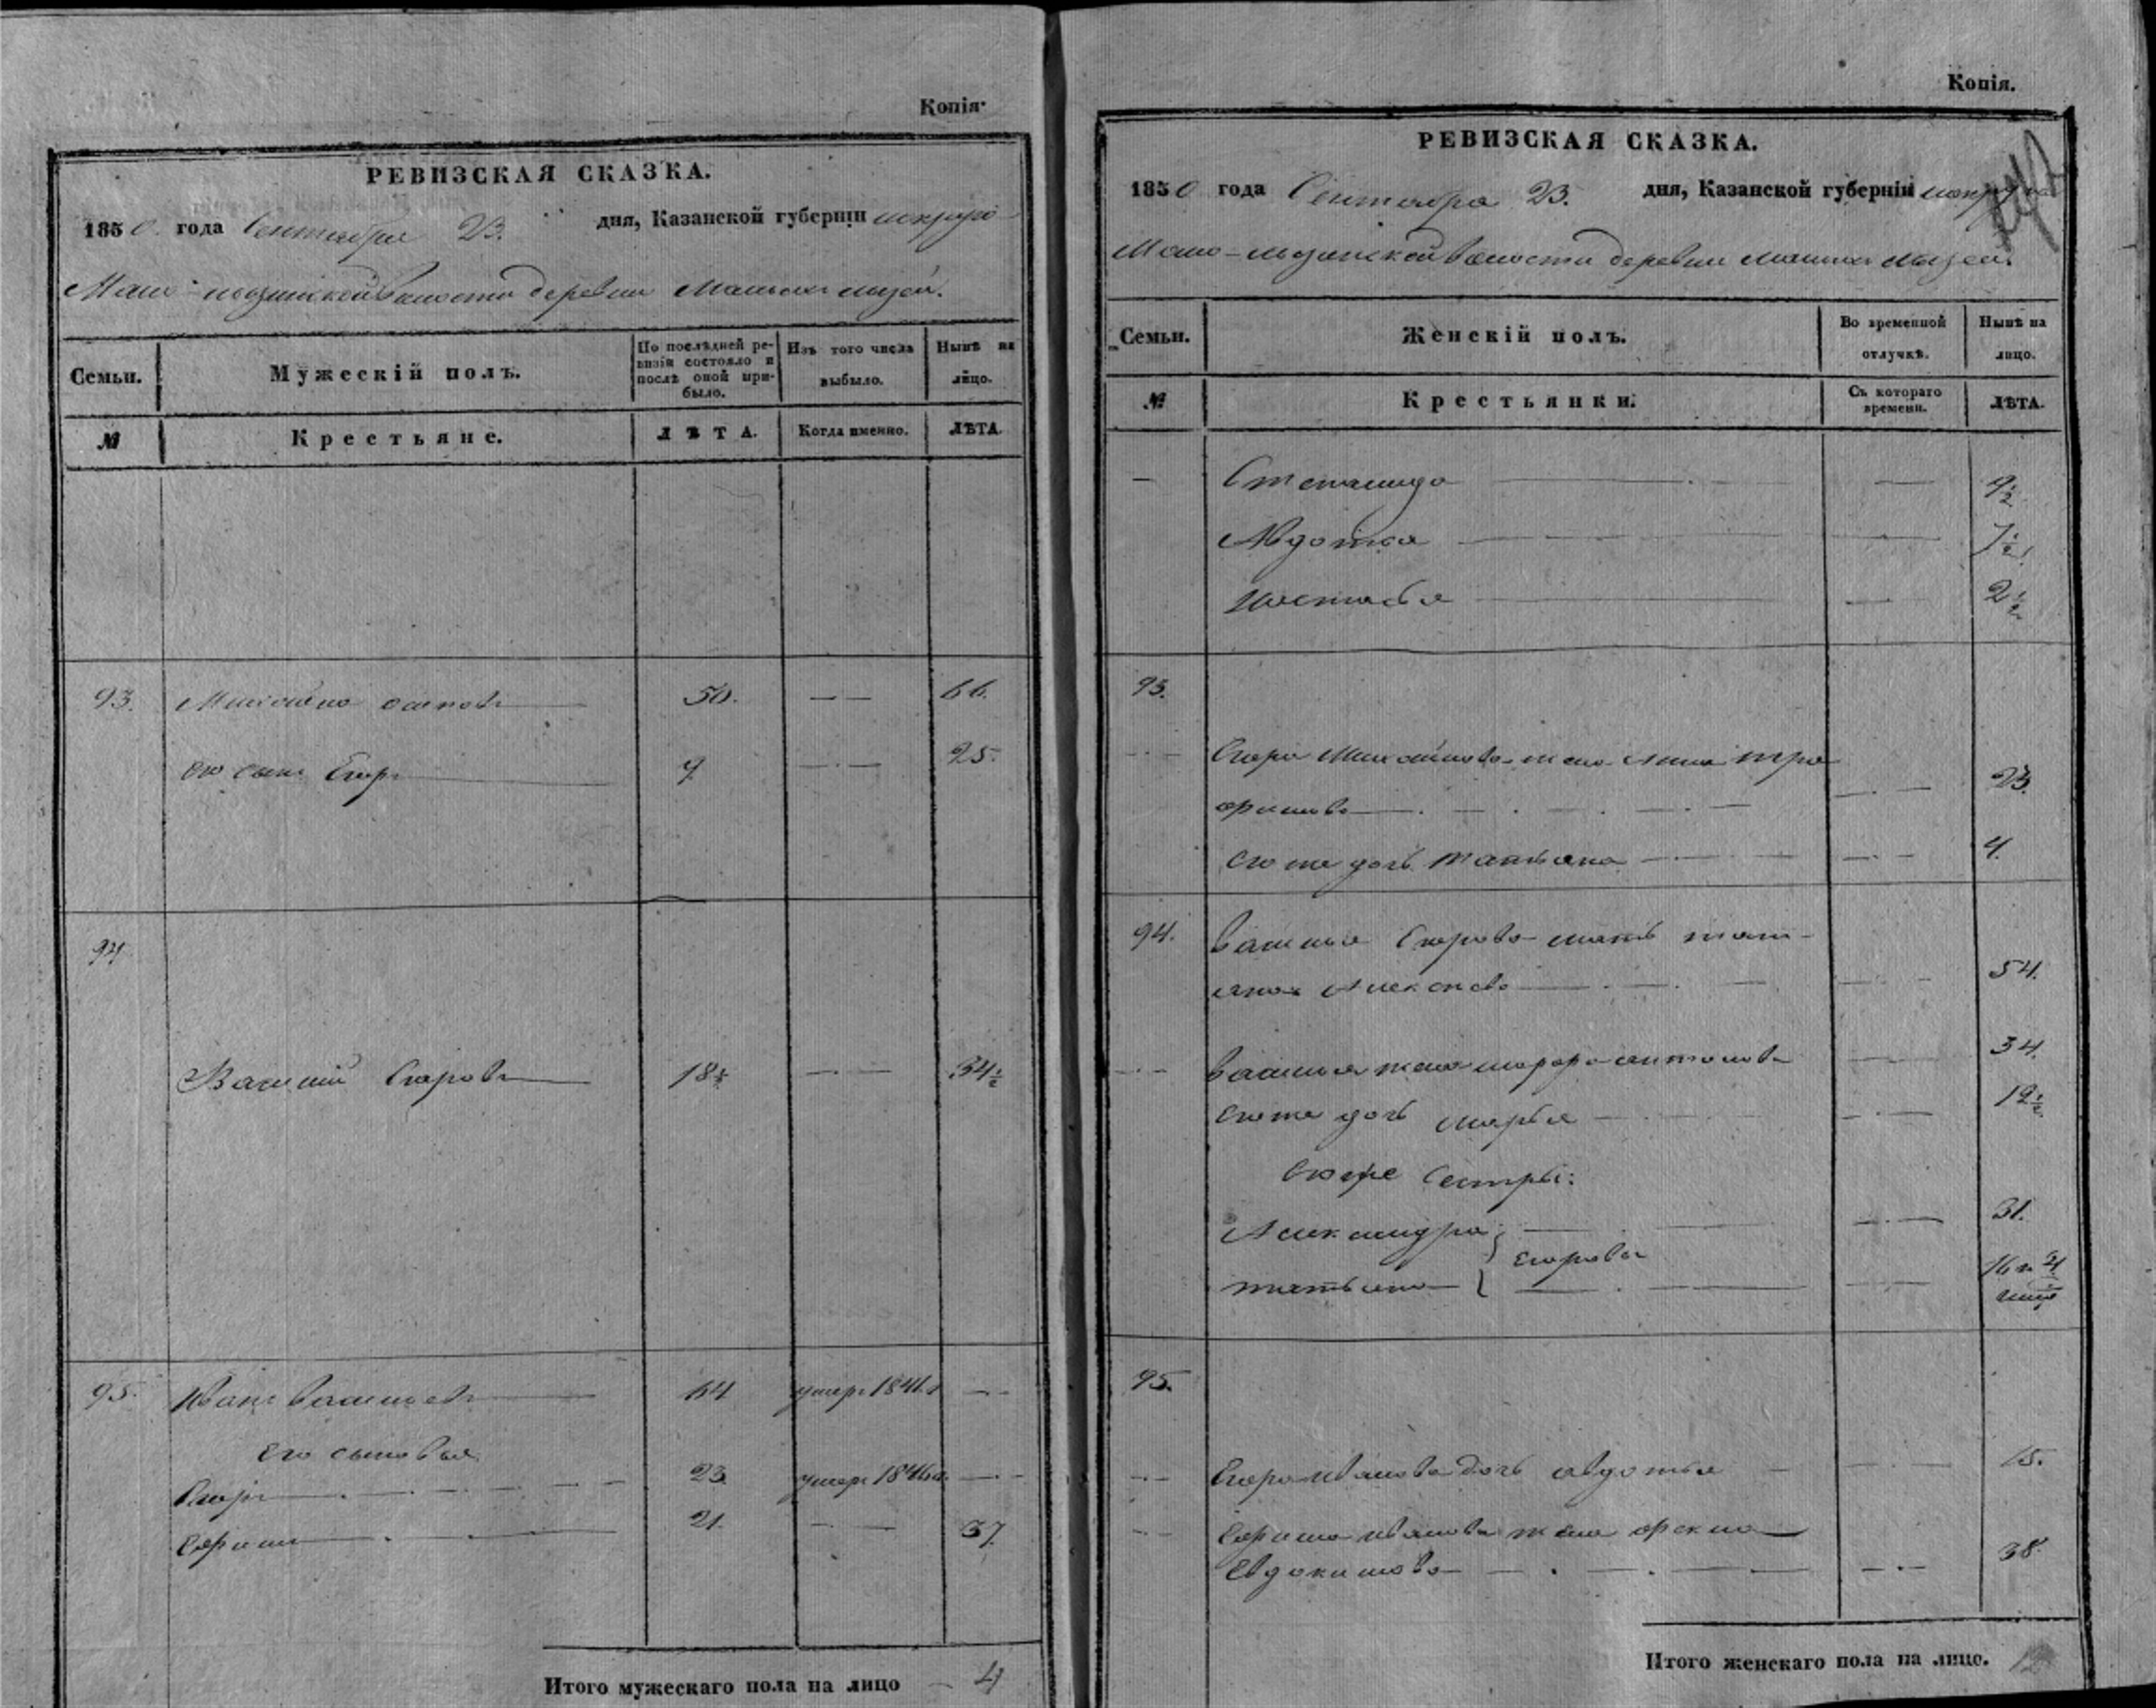 Копія.
РЕВИЗСКАЯ СКАЗКА.
1850 года Сентября 23. дня, Казанской губерніи
волости деревни
Семьи.
Мужескій полъ.
По послѣдней ревизіи состояло и послѣ оной прибыло.
Изъ того числа выбыло.
Нынѣ на лицо.
№
Крестьяне.
ЛѢТА.
Когда именно.
ЛѢТА.
93. Михайло Осиповъ 50. 66.
его сынъ Егоръ 9 25.
94
Василий Егоровъ 18½ 34½
95. Иванъ Васильевъ 64 умеръ 1841
Его сыновья
Егоръ 23 умеръ 1846
Ефимъ 21. 37.
Итого мужескаго пола на лицо 4
Копія.
РЕВИЗСКАЯ СКАЗКА.
1850 года Сентября 23. дня, Казанской губерніи
волости деревни
Семьи.
Женскій полъ.
Во временной отлучкѣ.
Нынѣ на лицо.
№
Крестьянки.
Съ котораго времени.
ЛѢТА.
Степанида 9½
Авдотья 7½
Настасья 2½
93.
Егора Михайлова жена Анна Тро
фимова 23.
его же дочь Татьяна 4.
94. Василья Егорова мать Тать-
яна 54.
Василья жена Антонова 34.
Его же дочь Марья 12½
Его же Сестры:
Александра 31.
Егоровы
Татьяна
95.
Егора Иванова дочь Авдотья 15.
Ефима Иванова жена
Евдокимова 38.
Итого женскаго пола на лицо. 12